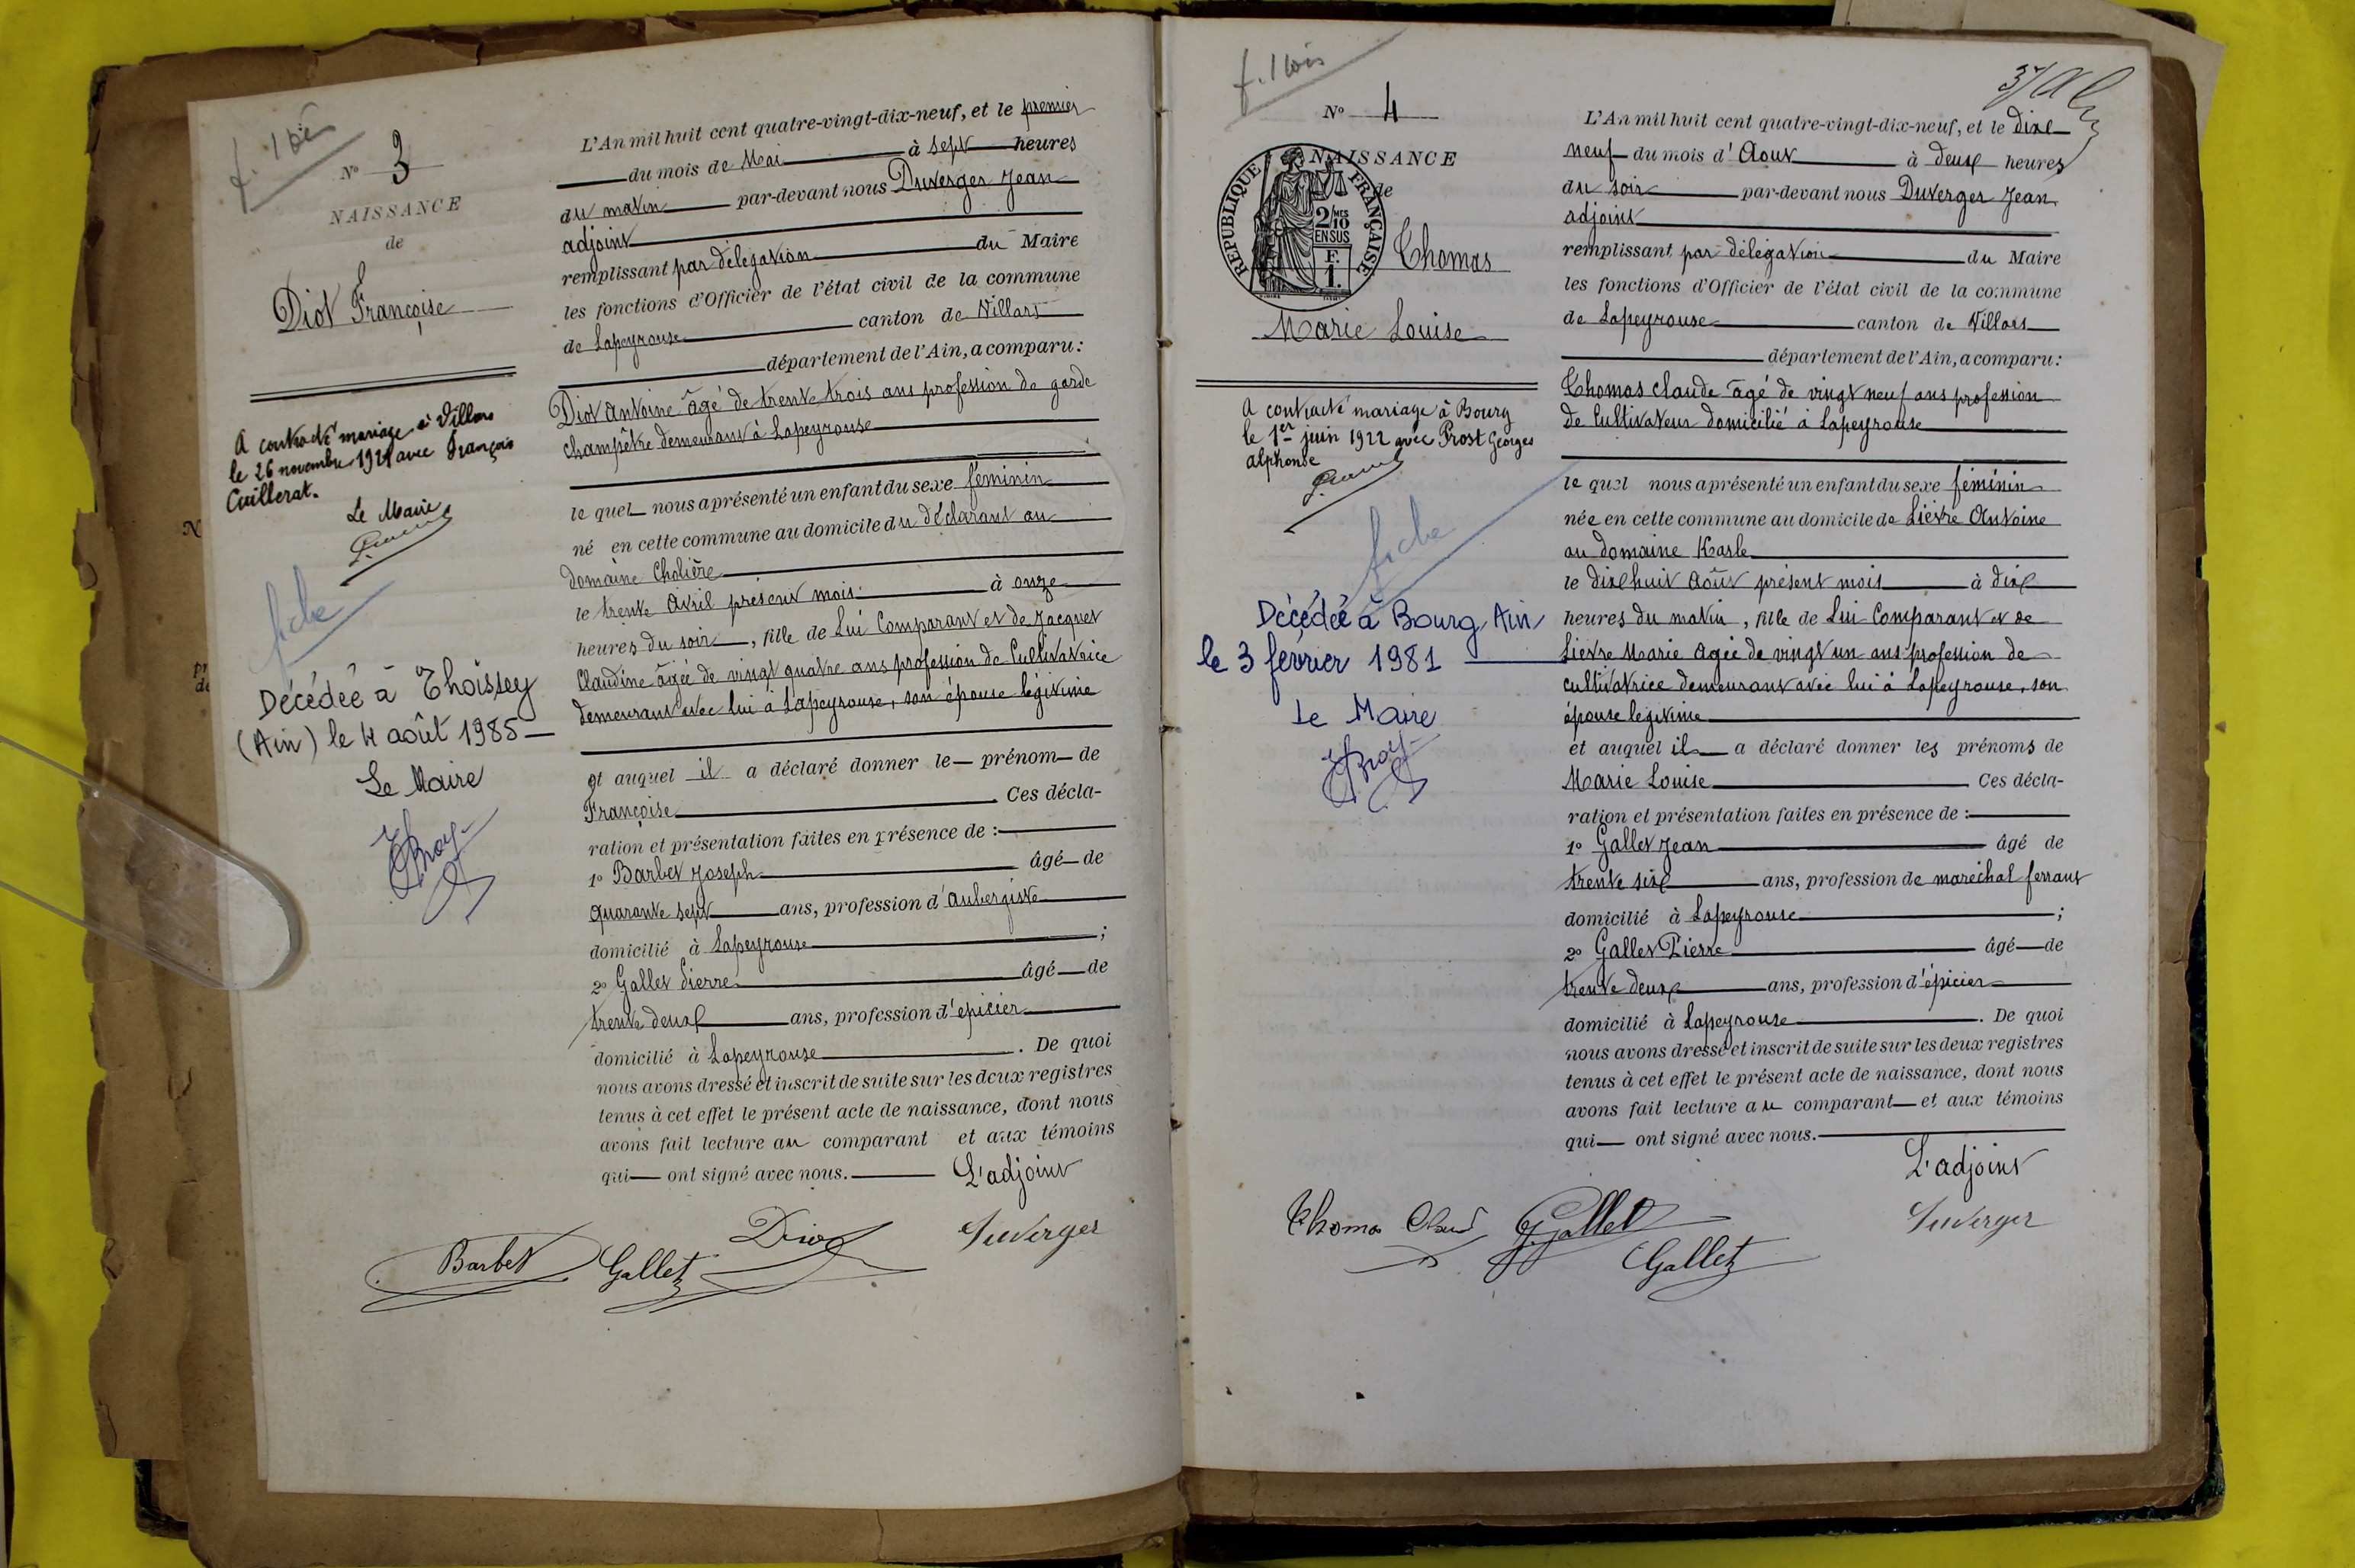 f. 1
N° 3
NAISSANCE
de
Diot Françoise
A contracté mariage à Villars
le 26 novembre 1921 avec François
Cuillerat.
Le Maire
fiche
Décédée à Thoissey
(Ain) le 4 août 1985
Le Maire
L'An mil huit cent quatre-vingt-dix-neuf, et le premier
du mois de Mai à sept heures
du matin par-devant nous Duverger Jean
adjoint
remplissant par délégation du Maire
les fonctions d'Officier de l'état civil de la commune
de Lapeyrouse canton de Villars
département de l'Ain, a comparu :
Diot Antoine âgé de trente trois ans profession de garde
champêtre demeurant à Lapeyrouse
le quel nous a présenté un enfant du sexe féminin
né en cette commune au domicile du déclarant au
domaine Cholière
le trente Avril présent mois à onze
heures du soir, fille de Lui Comparant et de Jacquet
Claudine âgée de vingt quatre ans profession de Cultivatrice
demeurant avec lui à Lapeyrouse, son épouse légitime
et auquel il a déclaré donner le prénom de
Françoise. Ces décla-
ration et présentation faites en présence de :
1° Barbet Joseph âgé de
quarante sept ans, profession d'aubergiste
domicilié à Lapeyrouse ;
2° Gallet Pierre âgé de
trente deux ans, profession d'épicier
domicilié à Lapeyrouse. De quoi
nous avons dressé et inscrit de suite sur les deux registres
tenus à cet effet le présent acte de naissance, dont nous
avons fait lecture au comparant et aux témoins
qui ont signé avec nous.
L'adjoint
Barbet Gallet Diot Duverger
f. 1
N° 4
NAISSANCE
de
REPUBLIQUE FRANÇAISE
2/10 MES
EN SUS
F.
1.
Thomas
Marie Louise
A contracté mariage à Bourg
le 1er juin 1922 avec Prost Georges
Alphonse
fiche
Décédée à Bourg Ain
le 3 février 1981
Le Maire
L'An mil huit cent quatre-vingt-dix-neuf, et le dixe
neuf du mois d'Aout à deux heures
du soir par-devant nous Duverger Jean
adjoint
remplissant par délégation du Maire
les fonctions d'Officier de l'état civil de la commune
de Lapeyrouse canton de Villars
département de l'Ain, a comparu :
Thomas Claude âgé de vingt neuf ans profession
de Cultivateur domicilié à Lapeyrouse
le quel nous a présenté un enfant du sexe féminin
née en cette commune au domicile de Lievre Antoine
au domaine
le dixe huit Août présent mois à dix
heures du matin, fille de Lui Comparant et de
Lievre Marie agée de vingt un ans profession de
cultivatrice demeurant avec lui à Lapeyrouse, son
épouse legitime
et auquel il a déclaré donner les prénoms de
Marie Louise Ces décla-
ration et présentation faites en présence de :
1° Gallet Jean âgé de
trente six ans, profession de maréchal ferrant
domicilié à Lapeyrouse ;
2° Gallet Pierre âgé de
trente deux ans, profession d'épicier
domicilié à Lapeyrouse. De quoi
nous avons dressé et inscrit de suite sur les deux registres
tenus à cet effet le présent acte de naissance, dont nous
avons fait lecture au comparant et aux témoins
qui ont signé avec nous.
L'adjoint
Thomas Claud J. Gallet Duverger
Gallet